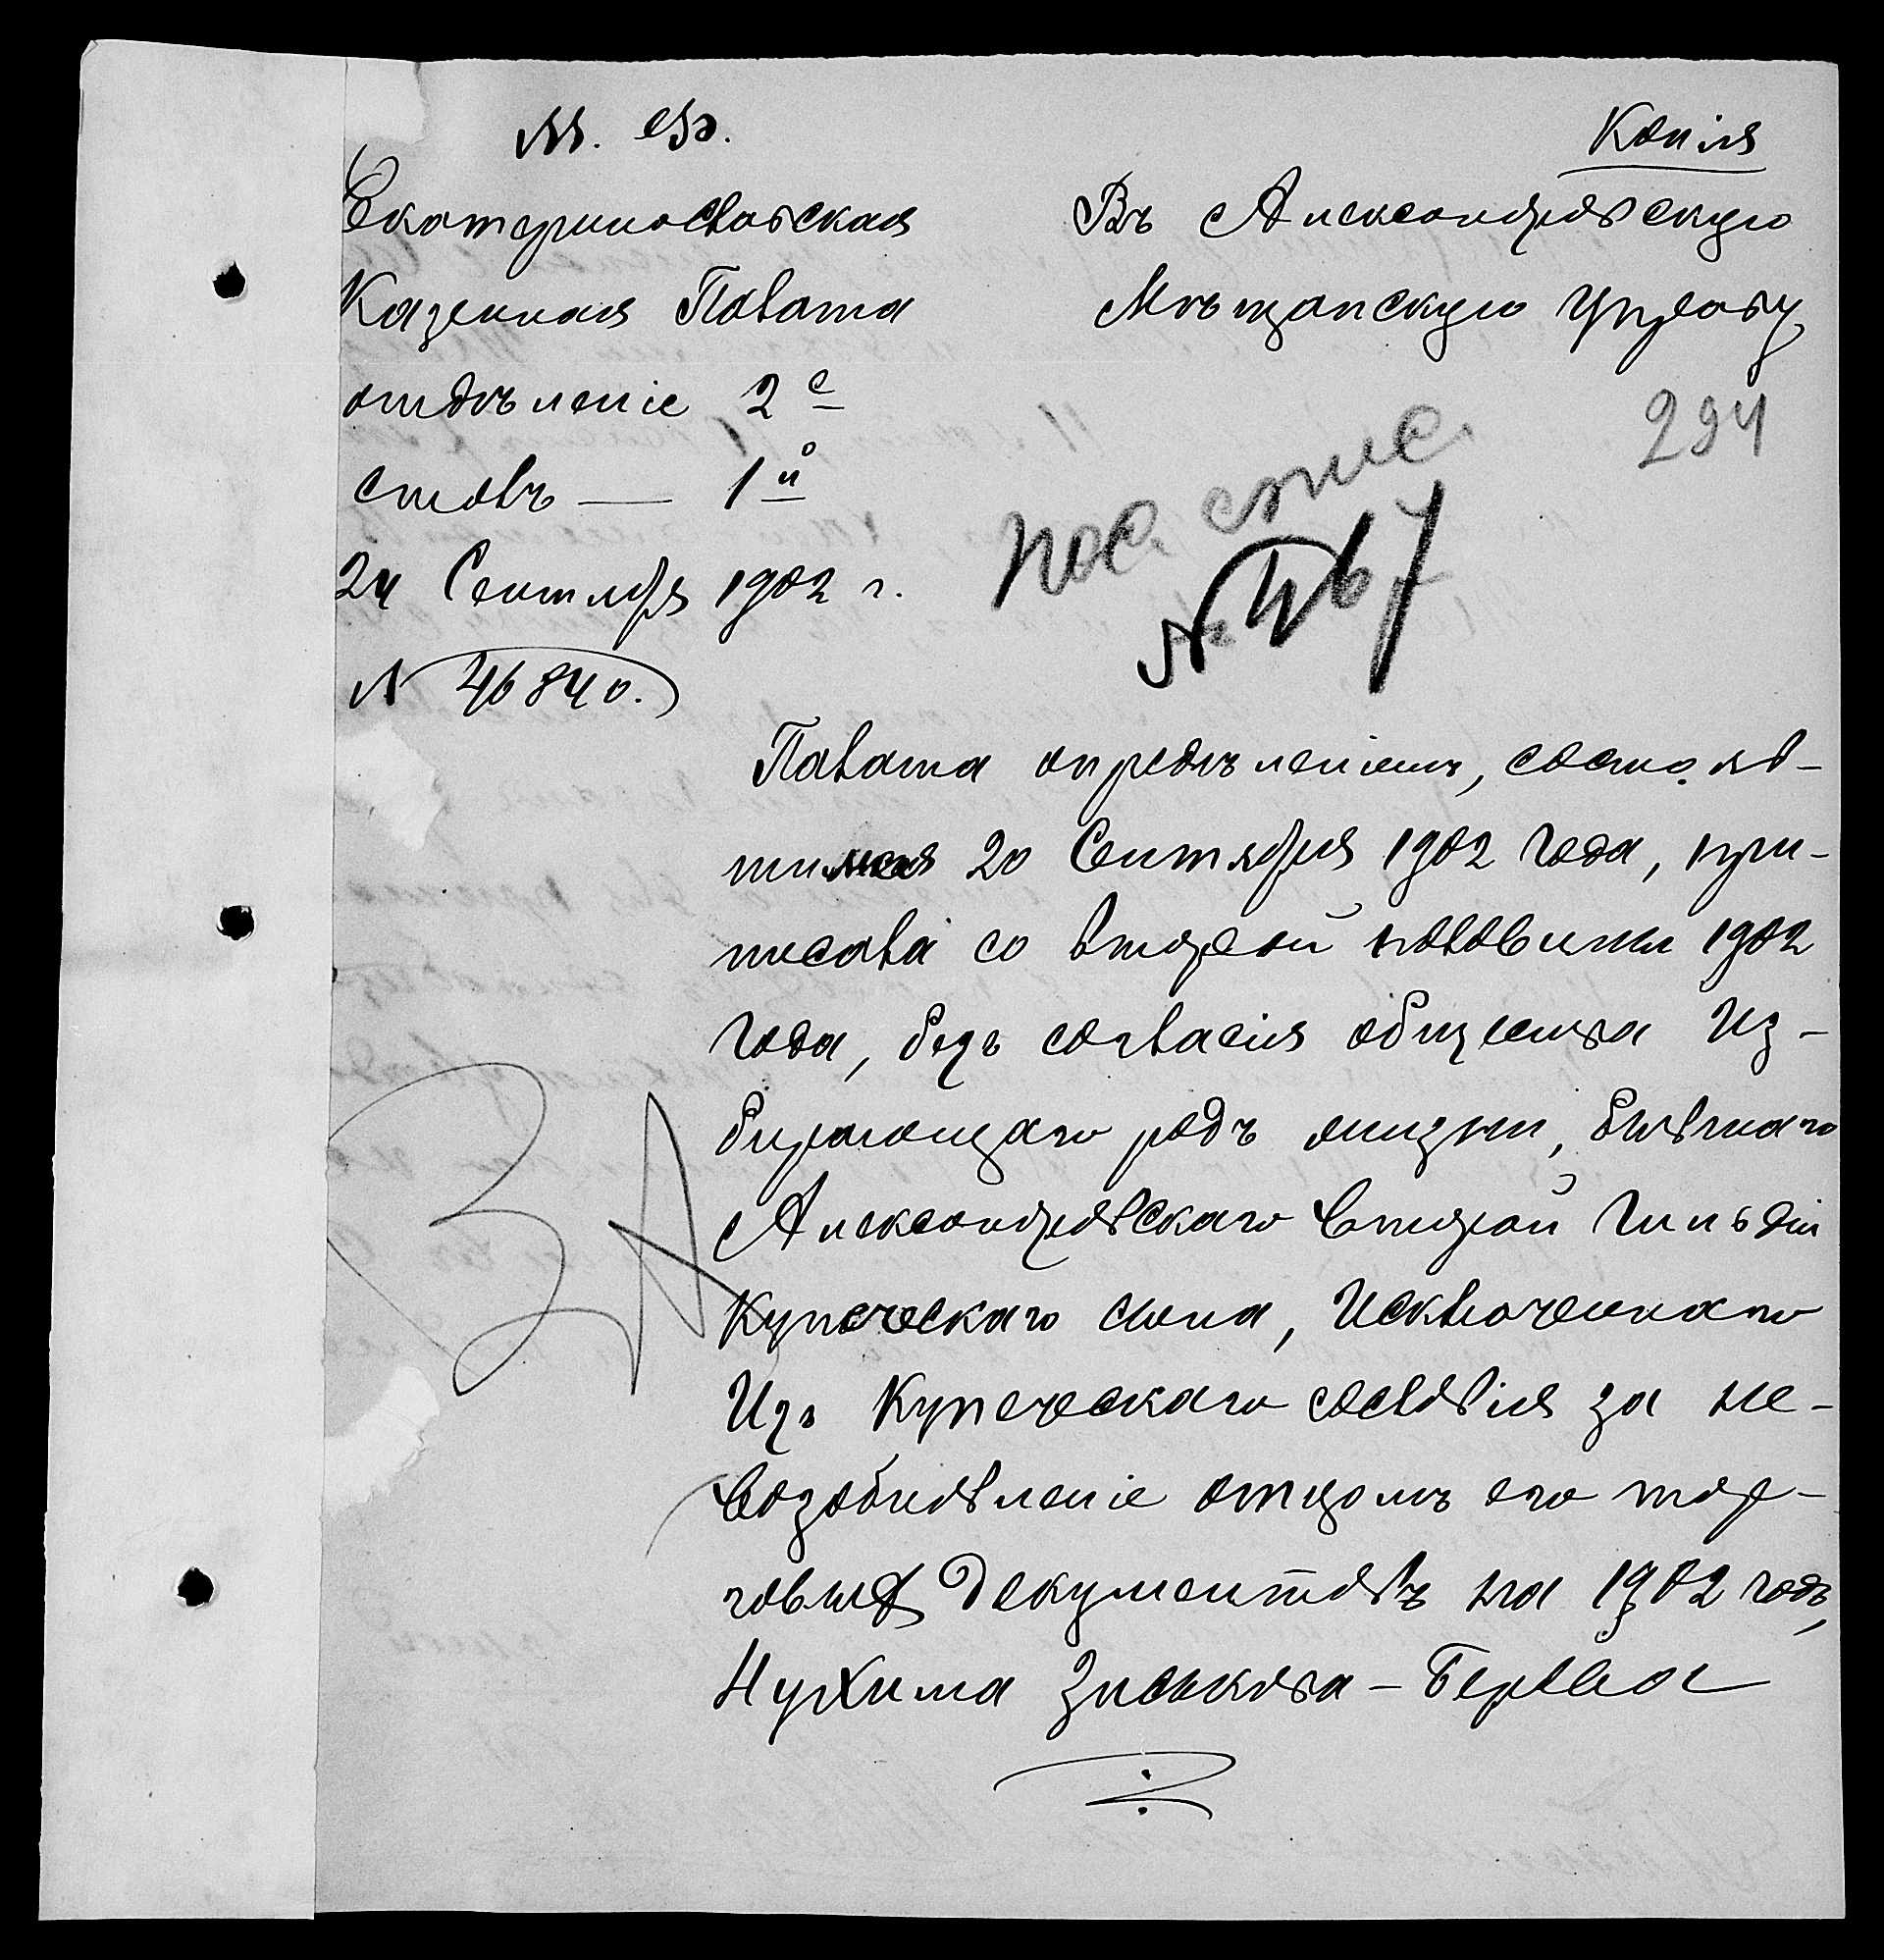 М. Ф.
Копія
Екатеринославская
Казенная Палата
отдѣленіе 2е
столъ — 1й
24 Сентября 1902 г.
№ 46840.
Въ Александровскую
Мѣщанскую Управу
294
пос. спис.
№ 467
Палата опредѣленіемъ, состояв-
шимся 20 Сентября 1902 года, при-
писала со второй половины 1902
года, безъ согласія общества из-
бирающаго родъ жизни, бывшаго
Александровскаго второй гильдіи
купеческаго сына, исключеннаго
изъ купеческаго сословія за не-
возобновленіе отцомъ его тор-
говыхъ документовъ на 1902 годъ,
Нухима Зиськова-Берова